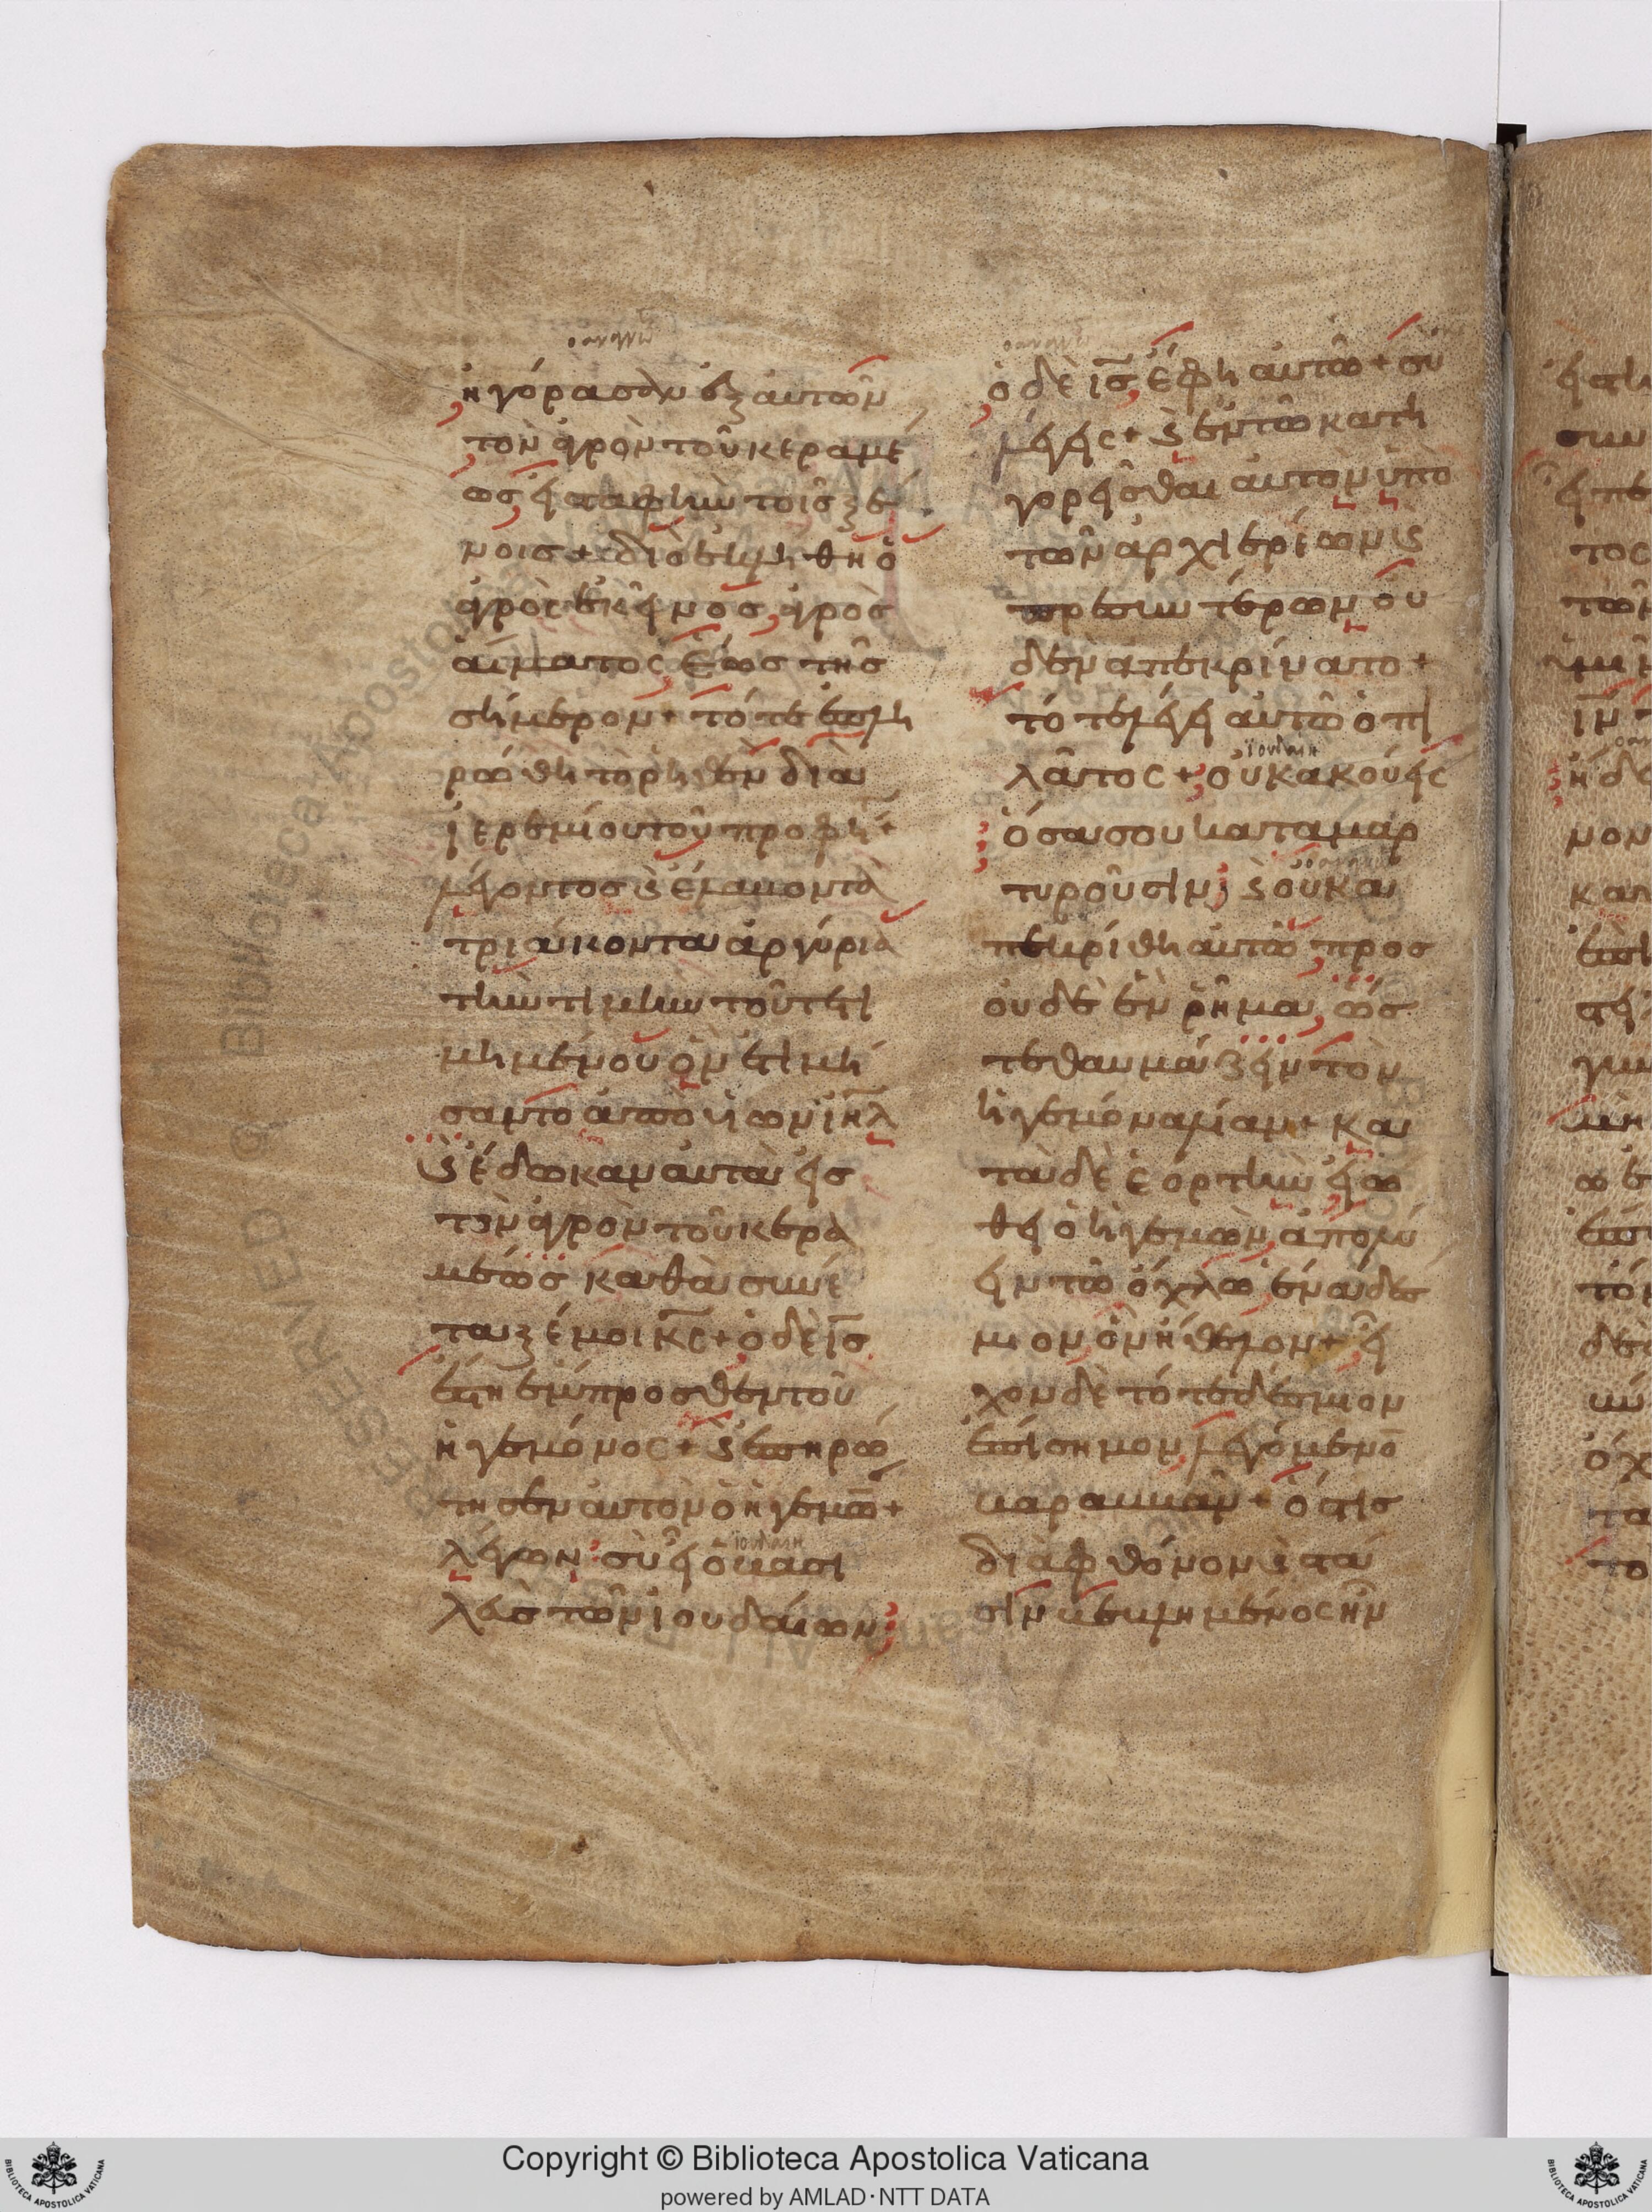 ἠγόρασαν ἐξ αὐτῶν
τὸν ἀγρὸν τοῦ κεραμέ
ως εἰς ταφὴν τοῖς ξέ
νοις + διὸ ἐκλήθη ὁ
ἀγρὸς ἐκεῖνος, ἀγρὸς
αἵματος ἕως τῆς
σήμερον + τότε ἐπλη
ρώθη τὸ ῥηθὲν διὰ
ἱερεμίου τοῦ προφή +
λέγοντος ϗ ἔλαβον τὰ
τριάκοντα ἀργύρια
τὴν τιμὴν τοῦ τετι
μημένου ὃν ἐτιμή
σαντο ἀπὸ υἱῶν ιηλ
ϗ ἔδωκαν αὐτὰ εἰς
τὸν ἀγρὸν τοῦ κερα
μέως καθὰ συνέ
ταξέ μοι κς + ὁ δὲ ις
ἔστη ἔμπροσθεν τοῦ
ἡγεμόνος + ϗ ἐπηρώ
τησεν αὐτὸν ὁ ἡγεμω +
λέγων· σὺ εἶ ὁ βασι
λεὺς τῶν ἰουδαίων;
ὁ δὲ ις ἔφη αὐτῶ + σὺ
λέγεις + ϗ ἐν τῶ κατη
γορεῖσθαι αὐτὸν ὑπὸ
τῶν ἀρχιερέων ϗ
πρεσβυτέρων οὐ
δὲν ἀπεκρίνατο +
τότε λέγει αὐτῶ ὁ πι
λᾶτος + οὐκ ἀκούεις
ὅσα σου καταμαρ
τυροῦσιν; ϗ οὐκ ἀ
πεκρίθη αὐτῶ προς
οὐδὲ ἓν ῥῆμα, ὥς
τε θαυμάζειν τὸν
ἡγεμόνα λίαν + κα
τὰ δὲ ἑορτὴν εἰώ
θει ὁ ἡγεμὼν ἀπολύ
ειν τῶ ὄχλω ἕνα δέσ
μιον ὃν ἤθελον + εἶ
χον δὲ τότε δέσμιον
ἐπίσημον λεγόμενο
βαραββᾶν + ὅστις
διὰ φθόνον ϗ στά
σιν βεβλημένος ἦν
Copyright © Biblioteca Apostolica Vaticana
powered by AMLAD·NTT DATA